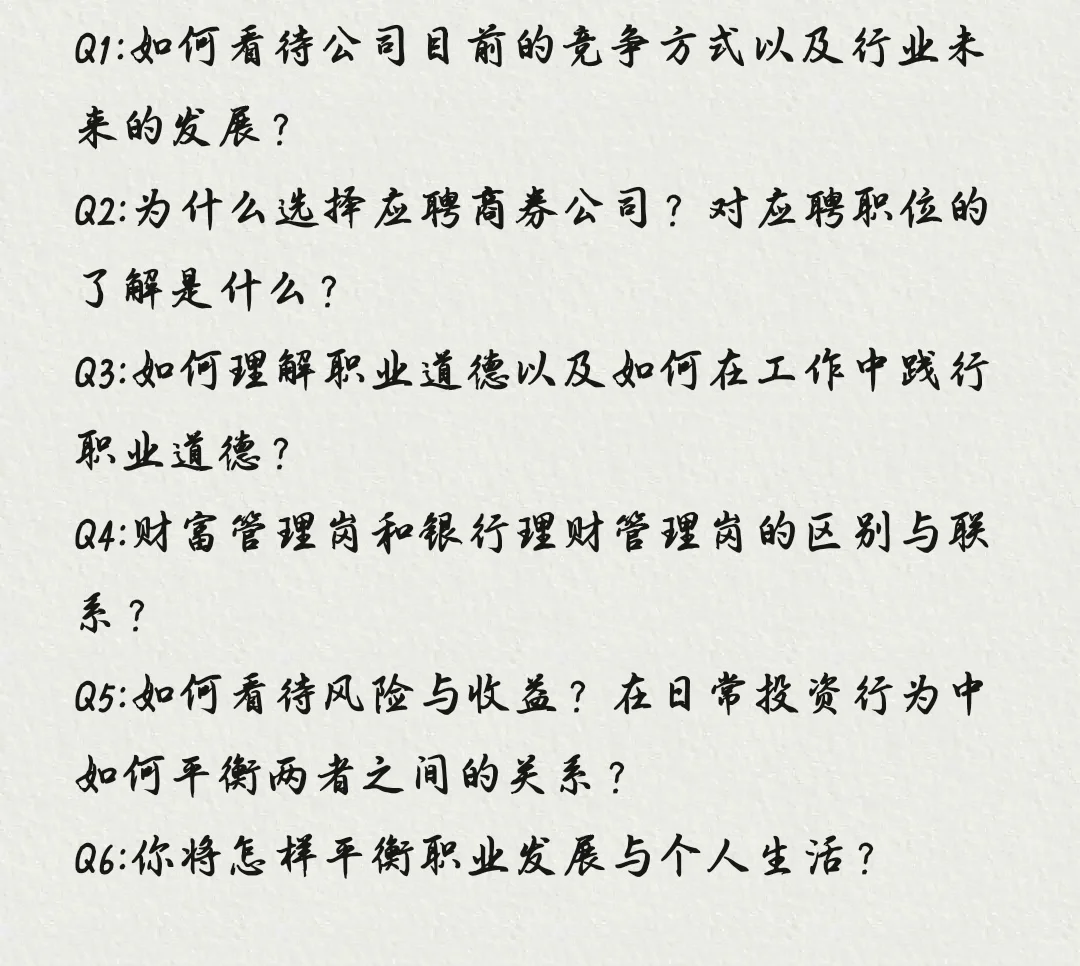 Q1:如何看待公司目前的竞争方式以及行业未
来的发展？
Q2:为什么选择应聘商券公司？对应聘职位的
了解是什么？
Q3:如何理解职业道德以及如何在工作中践行
职业道德？
Q4:财富管理岗和银行理财管理岗的区别与联
系？
Q5:如何看待风险与收益？在日常投资行为中
如何平衡两者之间的关系？
Q6:你将怎样平衡职业发展与个人生活？